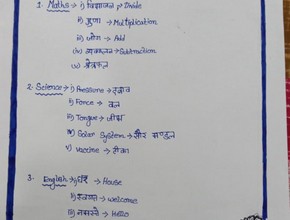 1. Maths → i) विभाजन → Divide
ii) गुणा → Multiplication
iii) जोग → Add
(iv) व्यवकलन → Subtraction
(v) क्षेत्रफल
2. Science → i) Pressure → दबाव
ii) Force → बल
iii) Tongue → जीभ
iv) Solar System → सौर मण्डल
v) Vaccine → टीका
3. English → i) घर → House
ii) स्वागत → Welcome
iii) नमस्ते → Hello